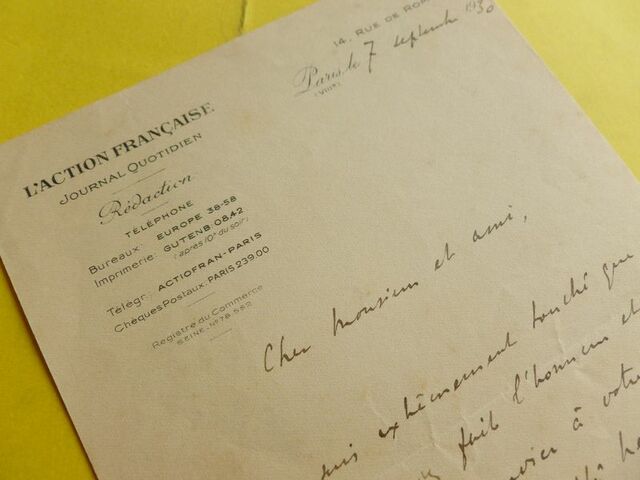 14, RUE DE RO
Paris le 7 septembre 1930
(VIIIe)
L'ACTION FRANÇAISE
JOURNAL QUOTIDIEN
Rédaction
TÉLÉPHONE
Bureaux: EUROPE 38-58
Imprimerie: GUTENB. 08.42
(après 10h du soir)
Télégr: ACTIOFRAN-PARIS
Chèques Postaux: PARIS 239.00
Registre du Commerce
SEINE. N° 78.582
Cher Monsieur et ami,
suis extrêmement touché que
fait l'honneur et
à votre